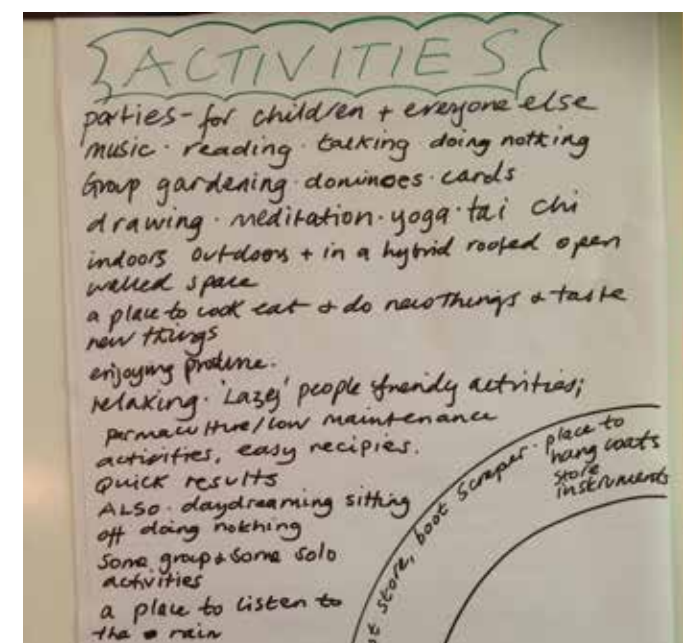 ACTIVITIES
parties - for children + everyone else
music · reading · talking doing nothing
Group gardening · dominoes · cards
drawing · meditation · yoga · tai chi
indoors outdoors + in a hybrid roofed open
walled space
a place to cook eat & do new things & taste
new things
enjoying produce.
relaxing · 'Lazy' people friendly activities;
permaculture/low maintenance
activities, easy recipies.
Quick results
ALSO · daydreaming sitting
off doing nothing
Some group & some solo
activities
a place to listen to
the rain
store, boot scraper · place to
hang coats
store
instruments